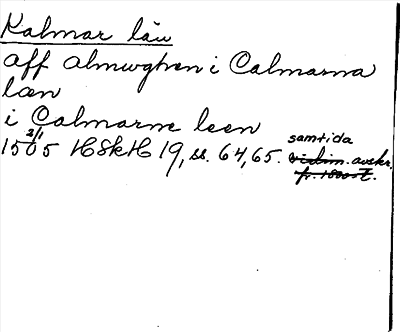 Kalmar län
aff almwghen i Calmarna
læn
i Calmarne leen
2/1
1505 HSkH 19, ss. 64, 65. vidim. avskr. samtida
fr. 1800-t.